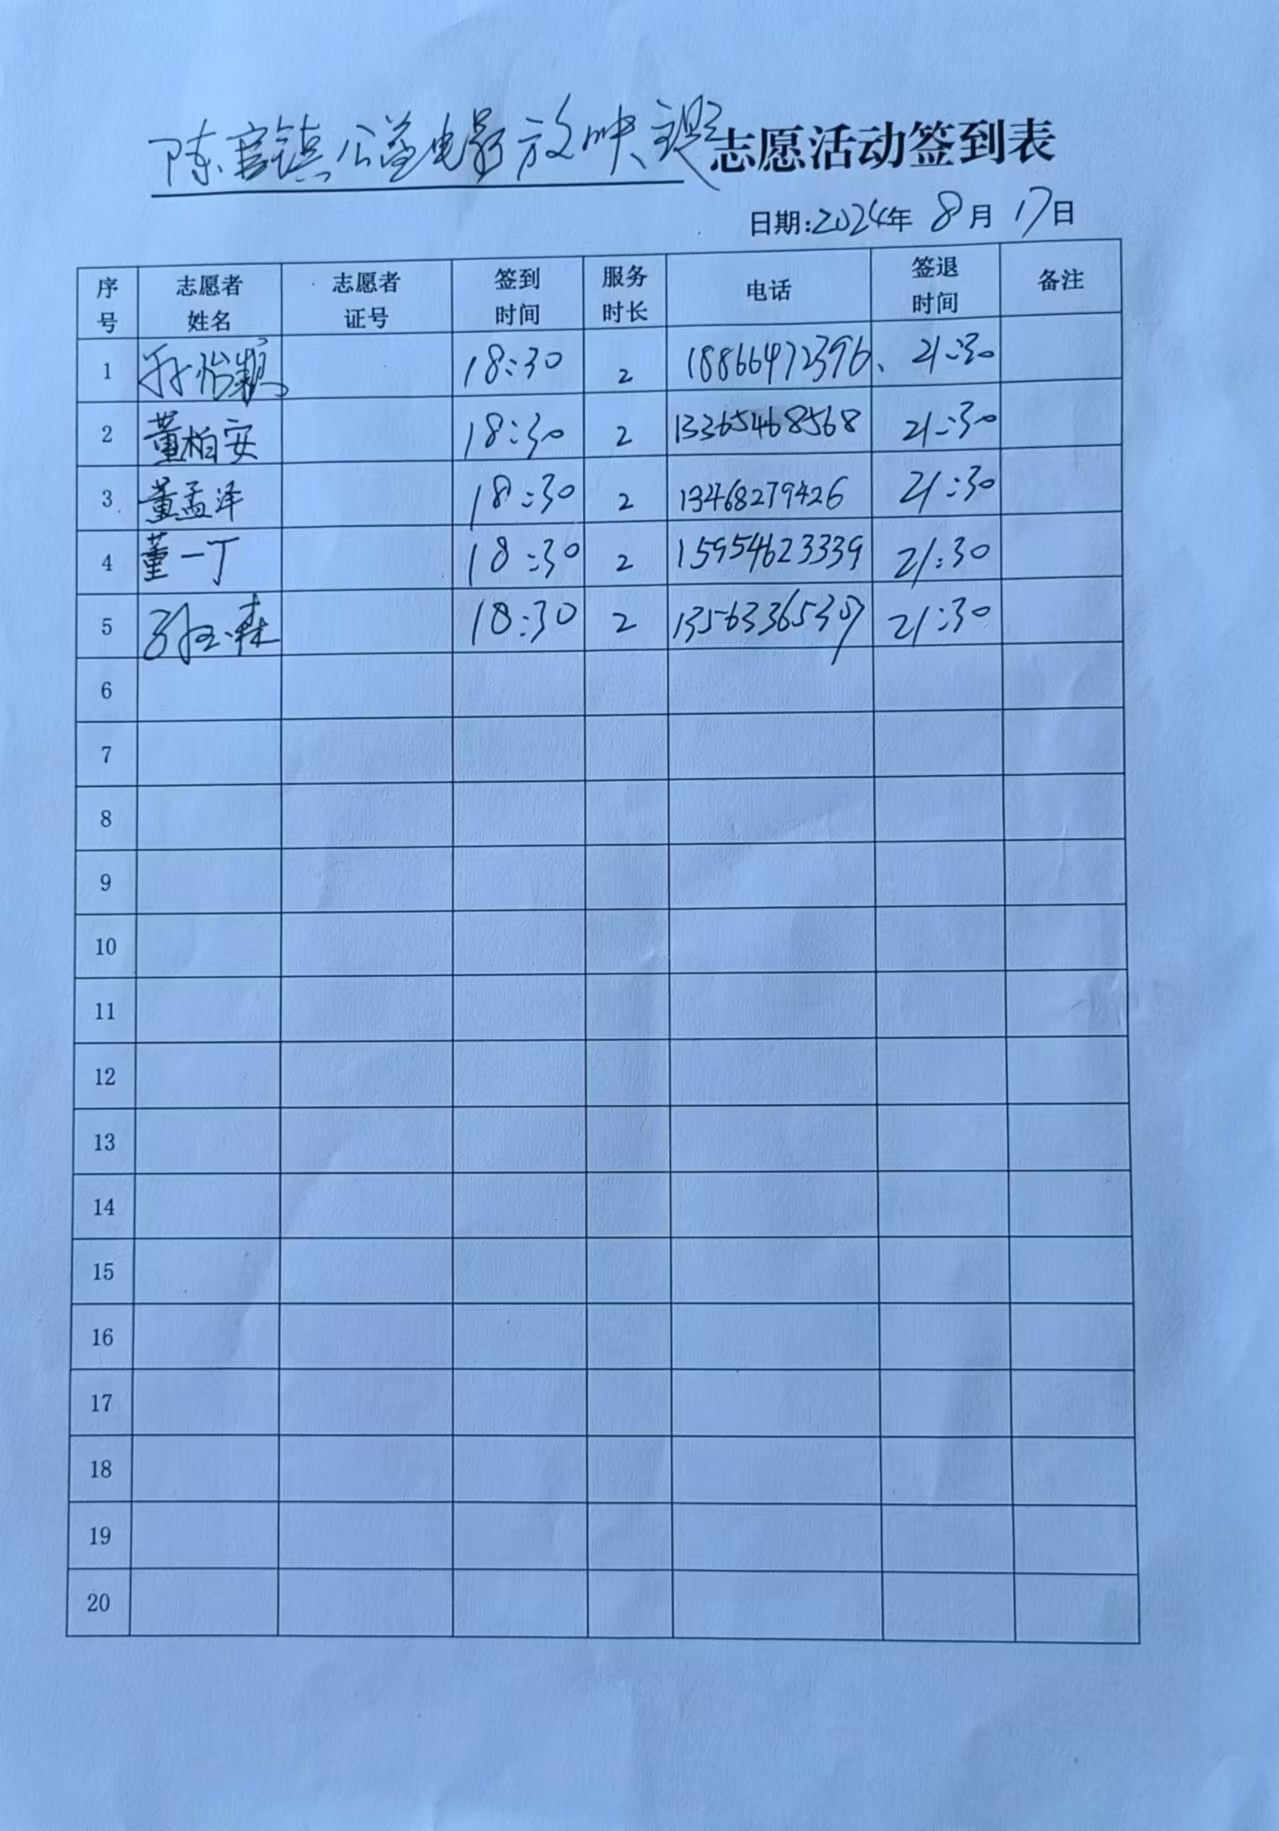 陈官镇公益电影放映主题志愿活动签到表
日期:2024年 8月 17日
序号 志愿者姓名 志愿者证号 签到时间 服务时长 电话 签退时间 备注
1 孙怡颖 18:30 2 18866472396、 21:30
2 董柏安 18:30 2 13365468568 21:30
3 董孟泽 18:30 2 13468279426 21:30
4 董一丁 18:30 2 15954623339 21:30
5 18:30 2 21:30
6
7
8
9
10
11
12
13
14
15
16
17
18
19
20